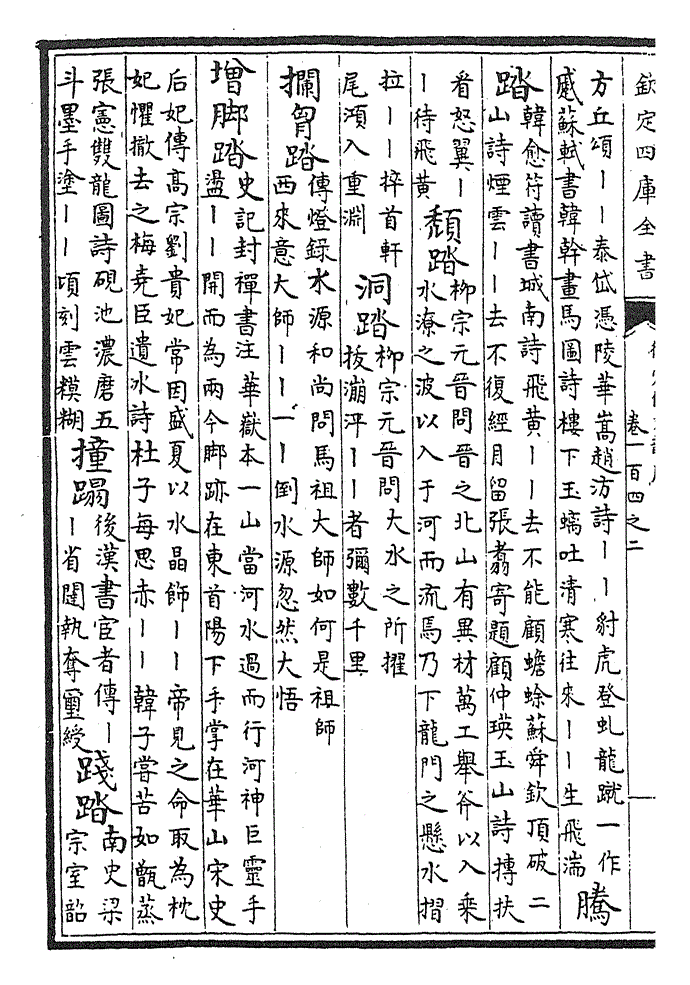 欽定四庫全書
卷一百四之二
方丘頌丨丨泰岱憑陵華嵩趙汸詩丨丨豺虎登虬龍蹴一作
蘇軾書韓幹畫馬圖詩樓下玉螭吐清寒往來丨丨生飛湍
騰
踏
韓愈符讀書城南詩飛黃丨丨去不能顧蟾蜍蘇舜欽頂破二
山詩煙雲丨丨去不復經月留張翥寄題顧仲瑛玉山詩摶扶
着怒翼丨
丨待飛黃
頹踏
柳宗元晉問晉之北山有異材萬工舉斧以入乘
水潦之波以入于河而流焉乃下龍門之懸水摺
拉丨丨捽首軒
尾澒入重淵
洞踏
柳宗元晉問大水之所擢
拔㴸泙丨丨者彌數千里
攔胷踏
傳燈錄水源和尚問馬祖大師如何是祖師
西來意大師丨丨一丨倒水源忽然大悟
增脚踏
史記封禪書注華嶽本一山當河水過而行河神巨靈手
盪丨丨開而為兩今脚跡在東首陽下手掌在華山宋史
后妃傳高宗劉貴妃常因盛夏以水晶飾丨丨帝見之命取為枕
妃懼撤去之梅堯臣遺冰詩杜子每思赤丨丨韓子嘗苦如甑蒸
張憲雙龍圖詩硯池濃磨五
斗墨手塗丨丨頃刻雲糢糊
撞蹋
後漢書宦者傳丨
丨省闥執奪璽綬
踐踏
南史梁
宗室韶